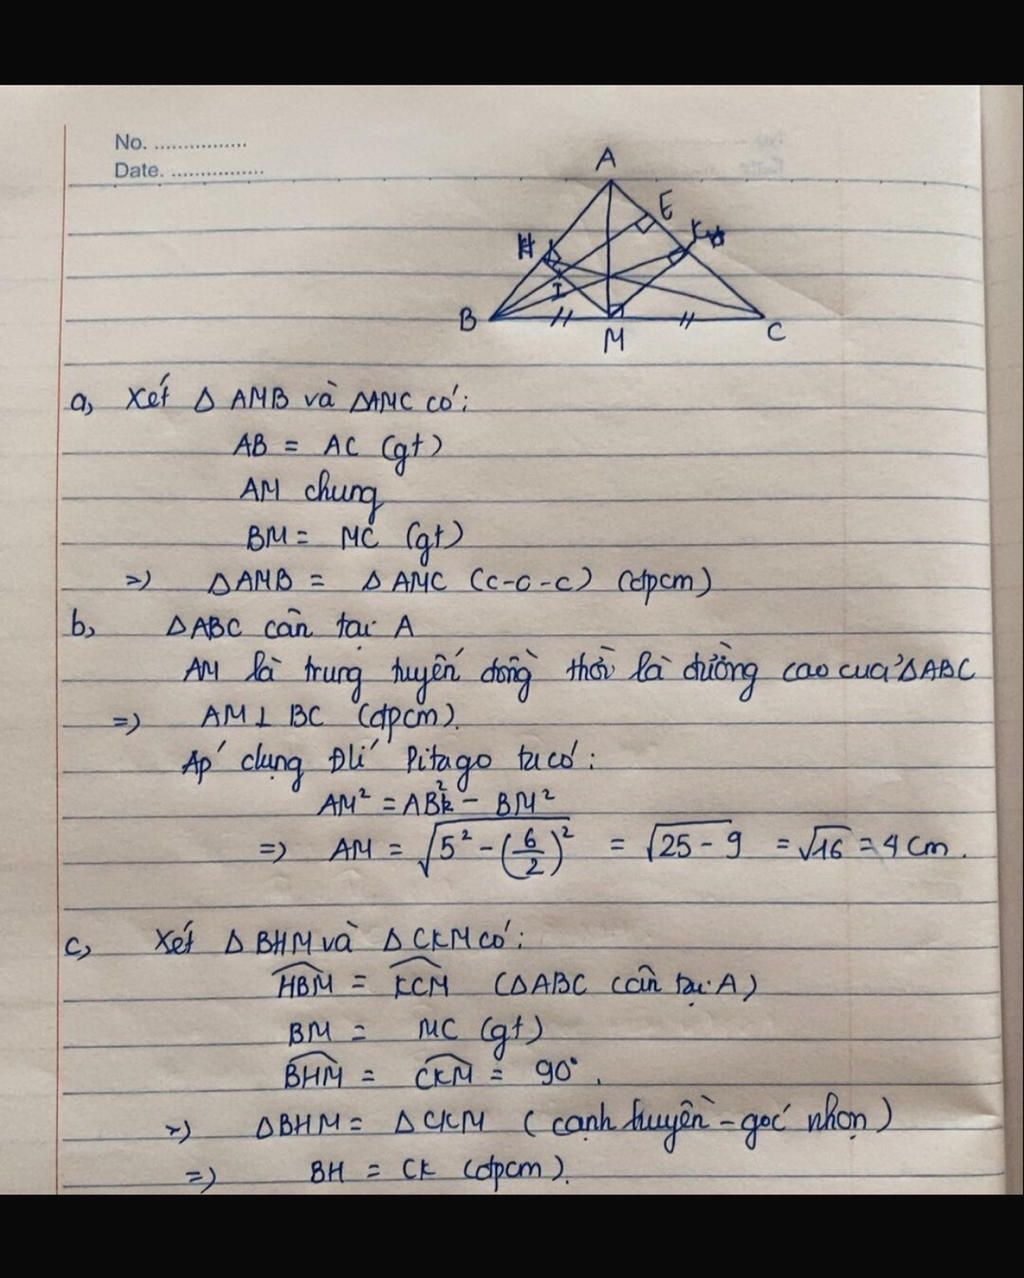 No. ................
Date. ................
A
E
H
K
I
B
M
C
a, Xét Δ AMB và ΔAMC có:
AB = AC (gt)
AM chung
BM = MC (gt)
=> ΔAMB = Δ AMC (c-c-c) (đpcm)
b, ΔABC cân tại A
AM là trung tuyến đồng thời là đường cao của ΔABC
=> AM ⊥ BC (đpcm).
Áp dụng Đlí Pitago ta có:
AM² = AB² - BM²
=> AM = √(5² - (6/2)²) = √(25 - 9) = √16 = 4 cm.
c, Xét Δ BHM và Δ CKM có:
\widehat{HBM} = \widehat{KCM} (ΔABC cân tại A)
BM = MC (gt)
\widehat{BHM} = \widehat{CKM} = 90°.
=> ΔBHM = ΔCKM (cạnh huyền - góc nhọn)
=> BH = CK (đpcm).